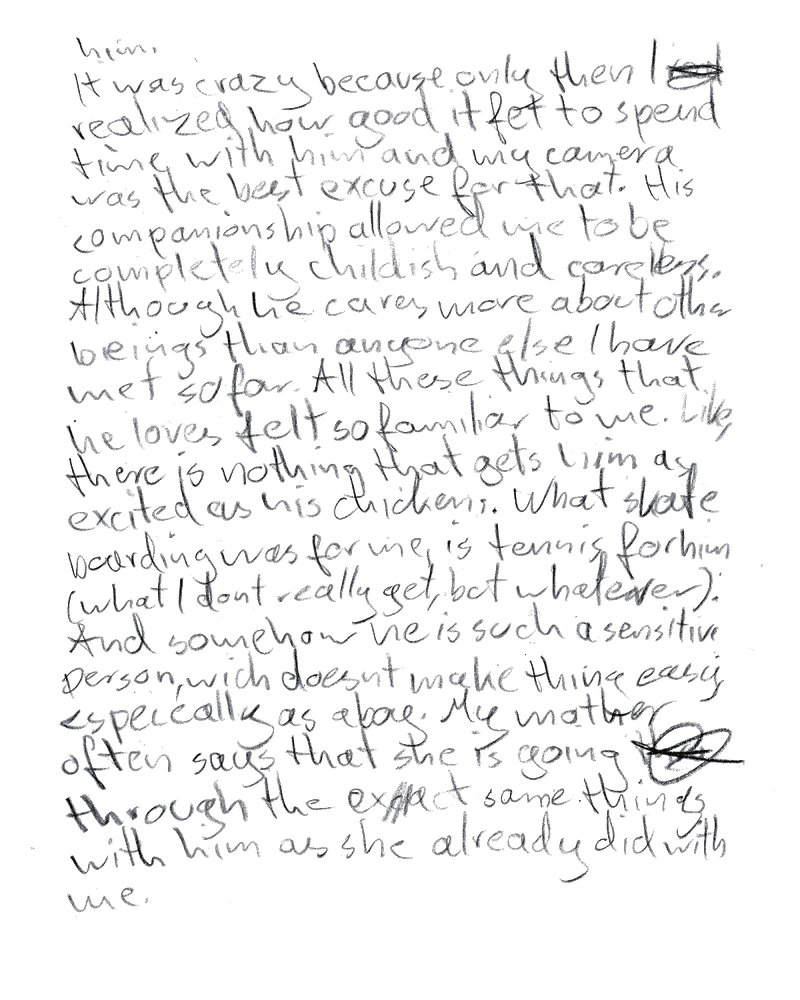 him.
It was crazy because only then I
realized how good it fet to spend
time with him and my camera
was the best excuse for that. His
companionship allowed me to be
completely childish and careless.
Although he cares more about other
beings than anyone else I have
met so far. All these things that
he loves felt so familiar to me. Like,
there is nothing that gets him as
excited as his chickens. What skate
boarding was for me, is tennis for him
(what I dont really get, but whatever).
And somehow he is such a sensitive
person, wich doesnt make thing easy
especcally as a boy. My mother
often says that she is going
through the exact same things
with him as she already did with
me.